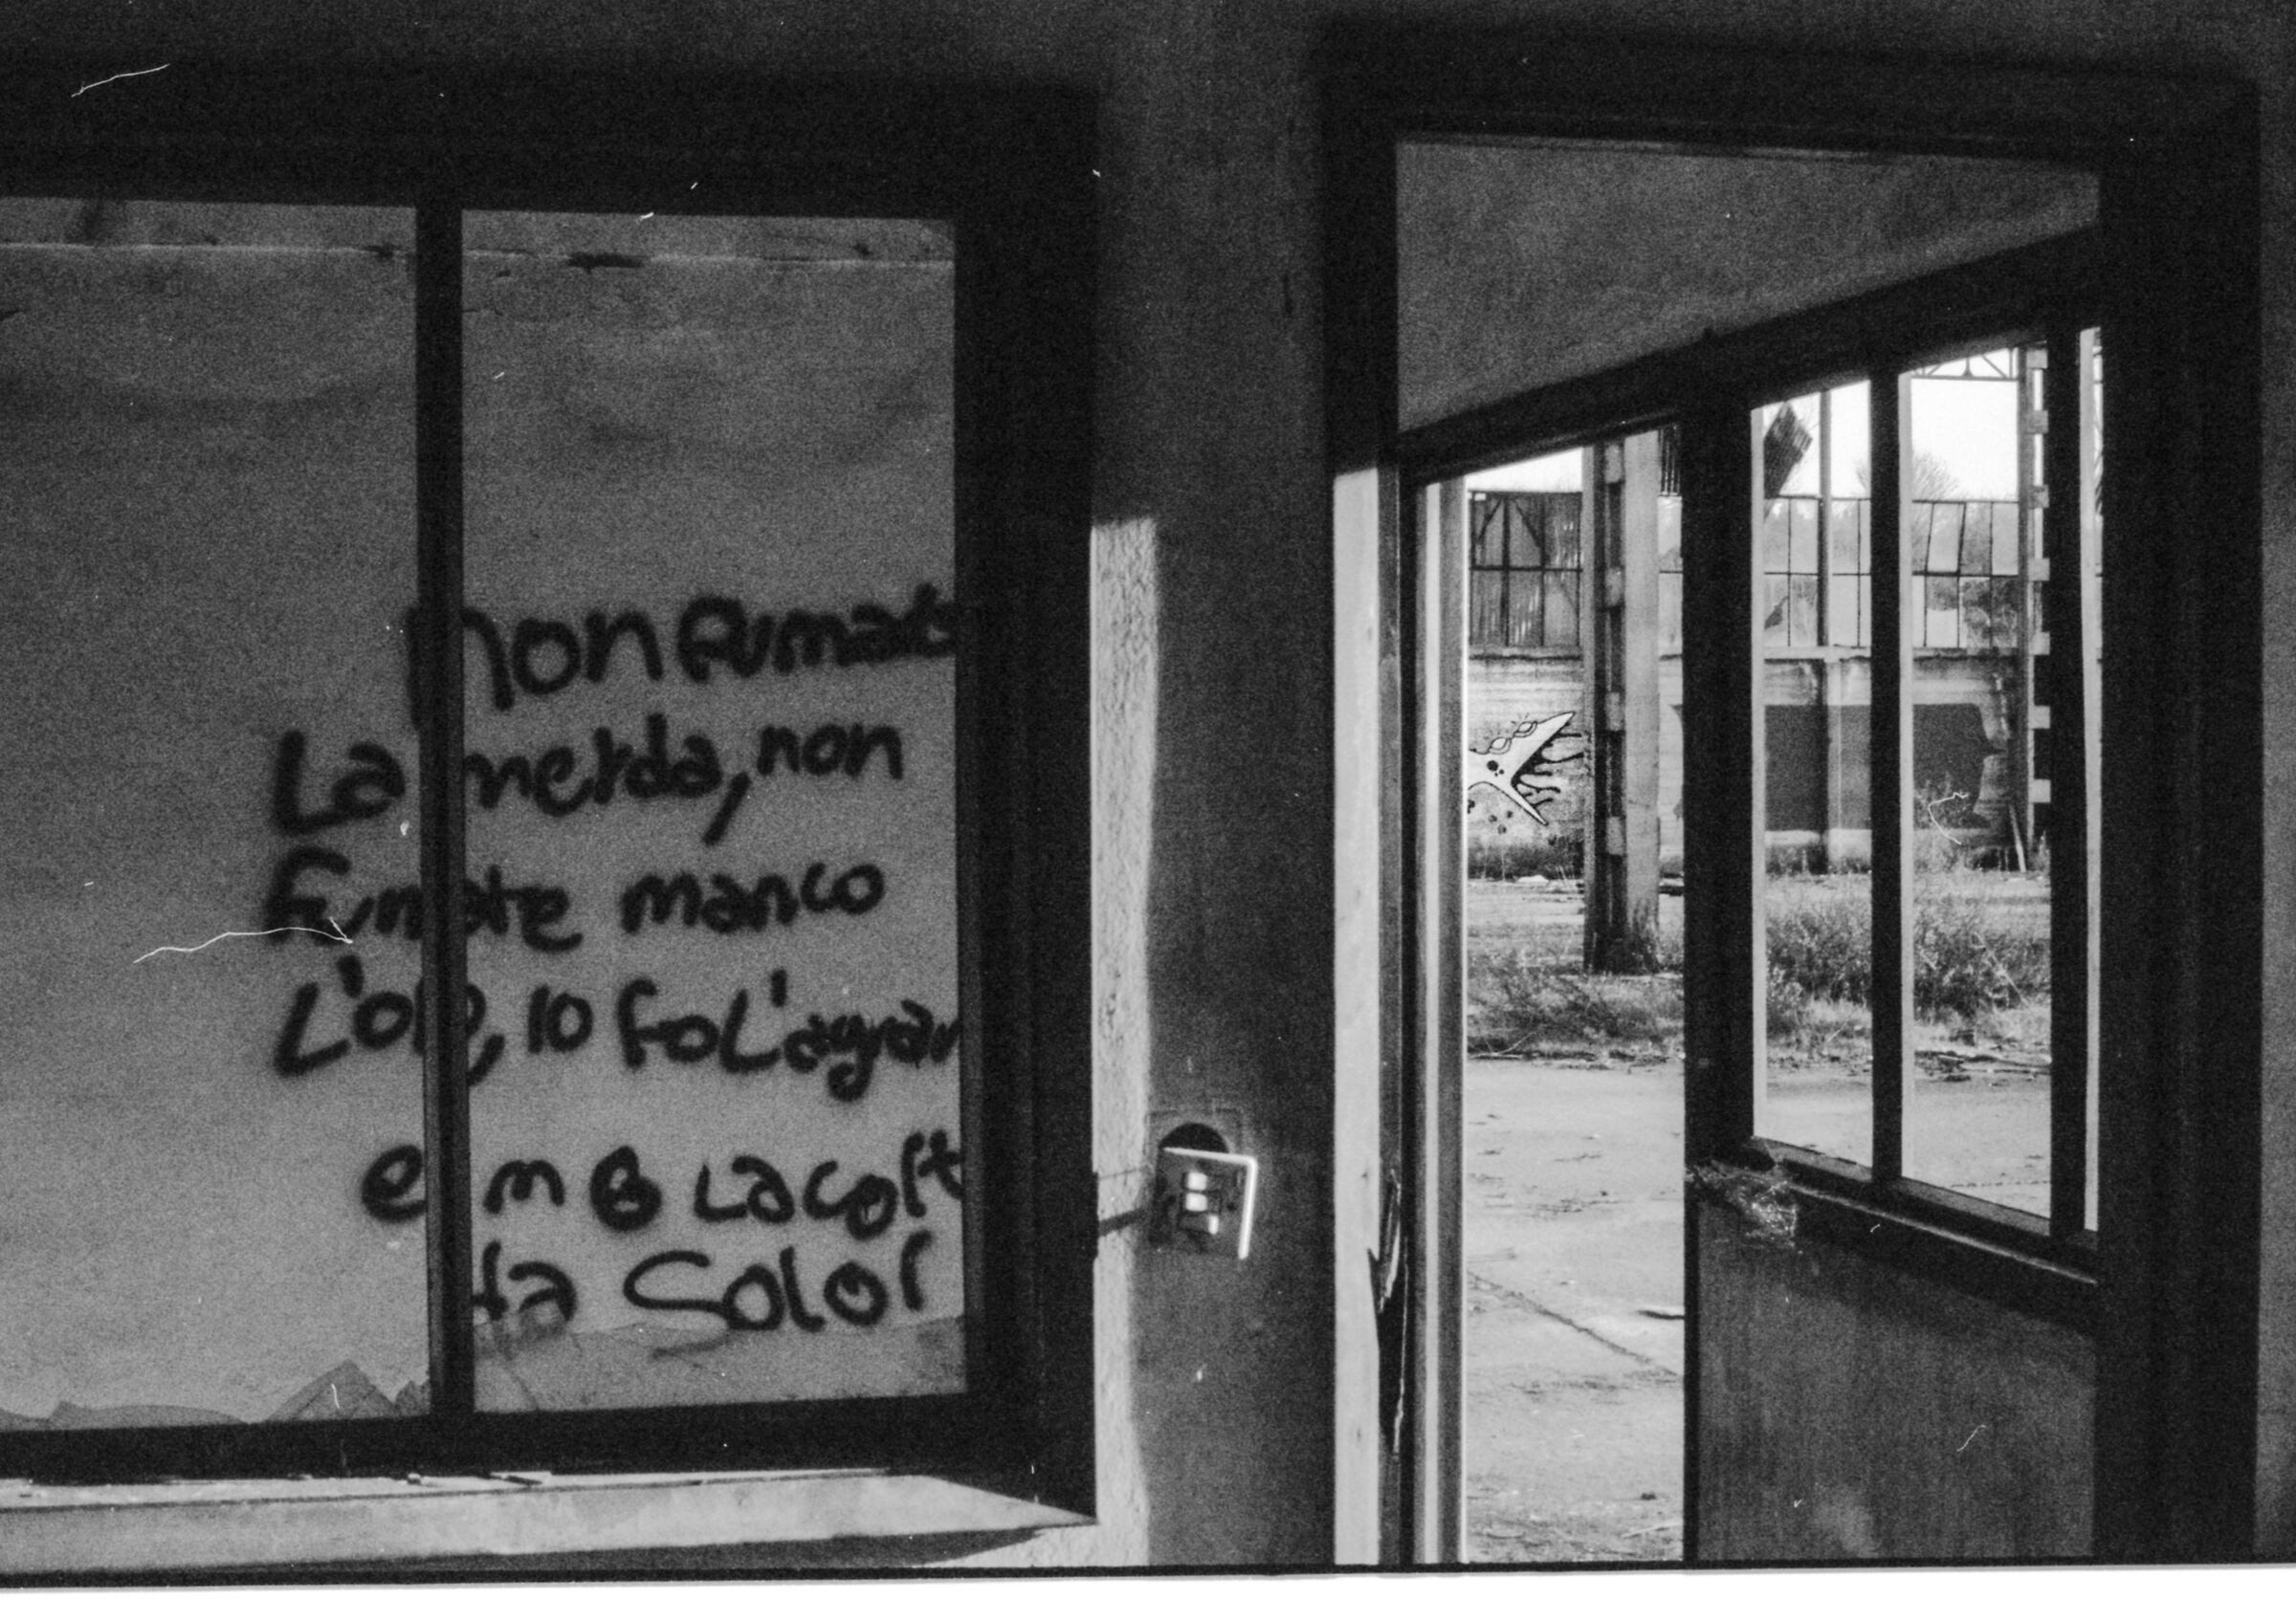 non fumat
La merda, non
fumate manco
L'olio, io fo L'agrar
e m la colt
ta Solo